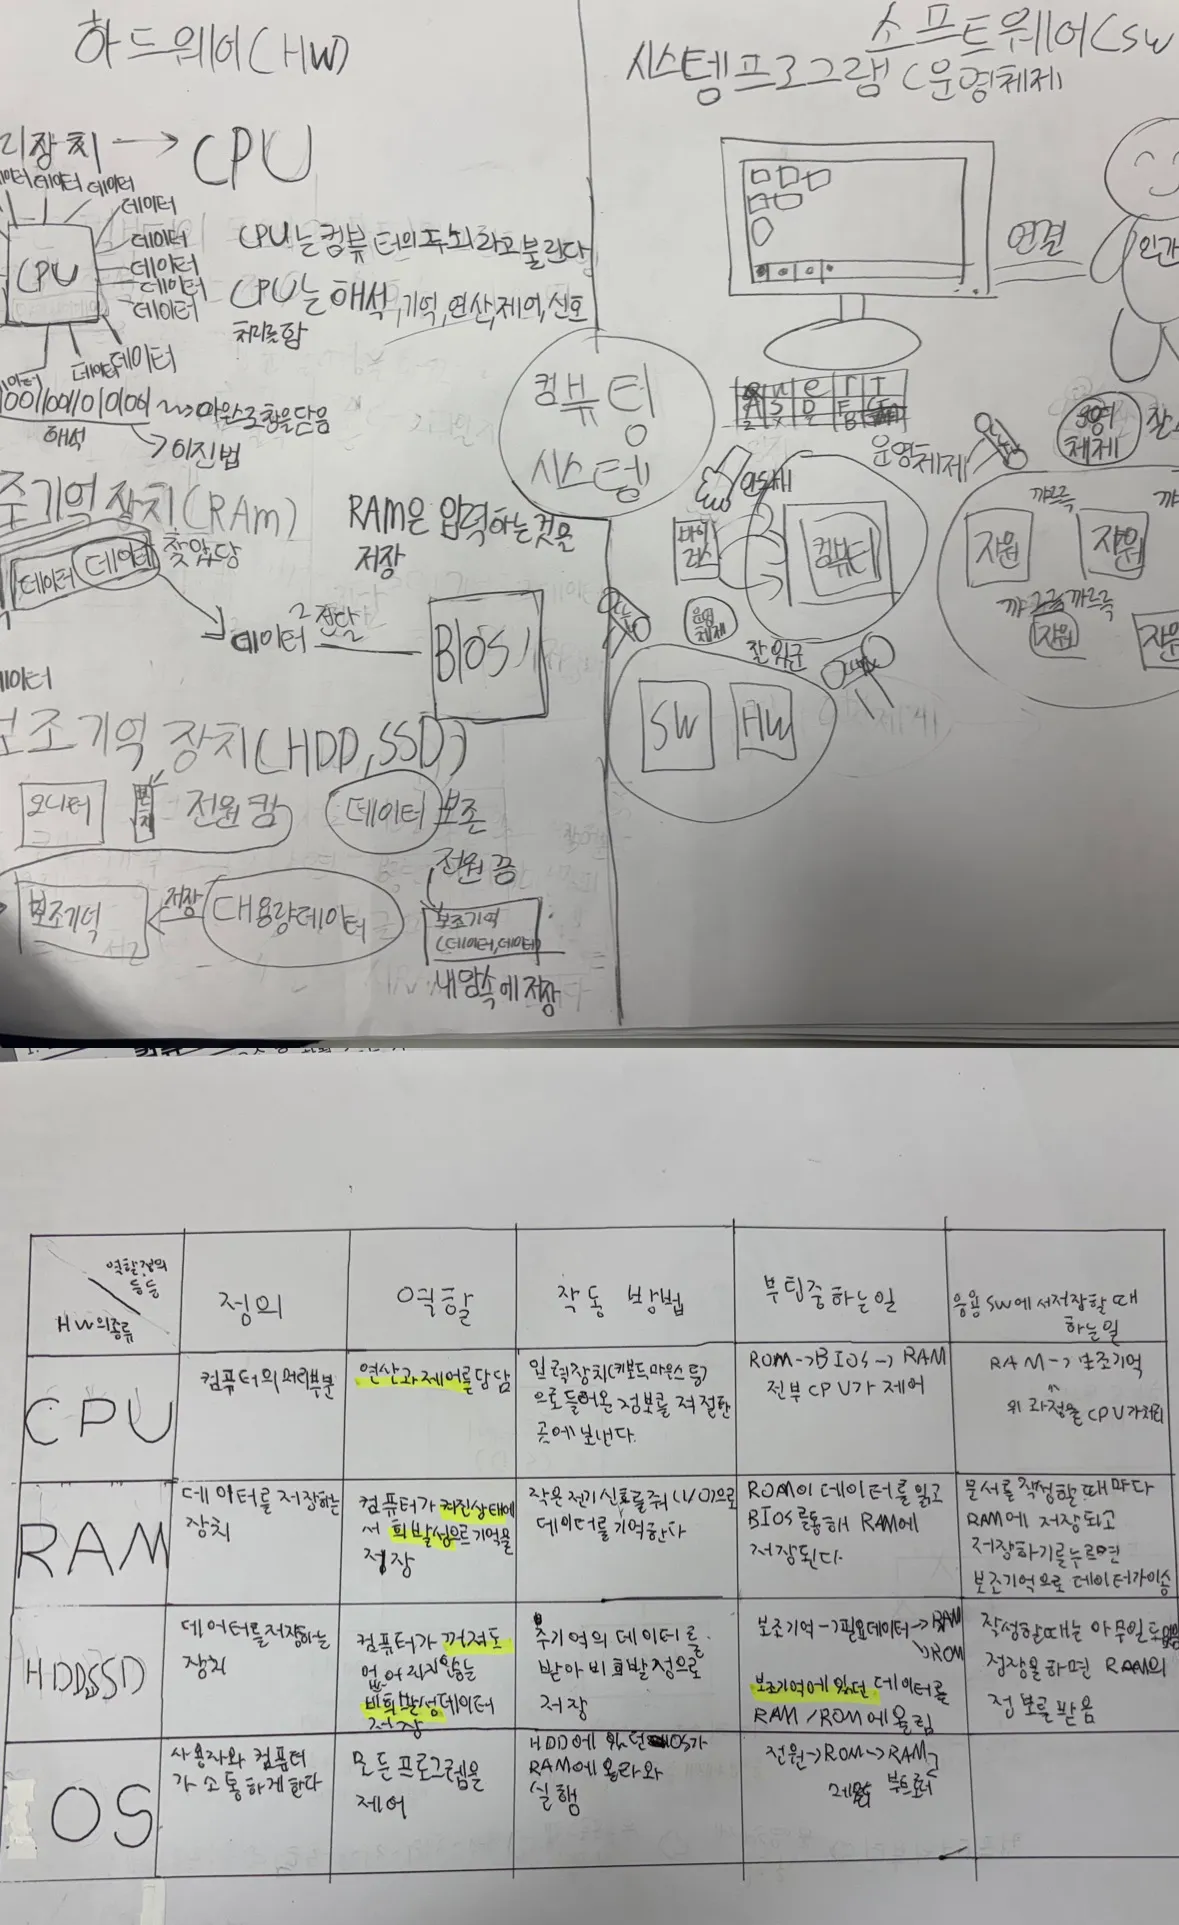 하드웨어(HW)
소프트웨어(SW
시스템프로그램(운영체제)
리장치 → CPU
데이터 데이터
데이터
데이터
데이터
데이터
데이터
CPU
CPU는 컴퓨터의 두뇌라고 불린다
CPU는 해석,기억,연산,제어,신호
처리를함
데이터 데이터
해석
이진법
연결
인간
컴퓨팅
시스템
운영체제
운영
체제
주기억장치(RAm)
RAM은 입력하는것을
저장
데이터 데이터
데이터 전달
BIOS
바이
러스
컴퓨터
운영
체제
자원
자원
까르륵
까르륵 까르륵
자원
자원
SW
HW
데이터
보조기억 장치(HDD,SSD)
모니터
전원 킴
데이터 보존
전원 끔
보조기억
저장
대용량데이터
보조기억
(데이터,데이터)
저장
역할정의
등등
HW의종류
정의
역할
작동 방법
부팅중하는일
응용SW에서저장할때
하는일
CPU
컴퓨터의머리부분
연산과제어를담당
입력장치(키보드마우스등)
으로들어온정보를적절한
곳에보낸다.
ROM→BIOS→RAM
전부CPU가 제어
RAM→보조기억
위 과정을CPU가처리
RAM
데이터를 저장하는
장치
컴퓨터가 켜진상태에
서 휘발성으로기억을
저장
작은전기신호를줘(1/0)으로
데이터를기억한다
ROM이 데이터를 읽고
BIOS를통해 RAM에
저장된다.
문서를작성할때마다
RAM에 저장되고
저장하기를누르면
보조기억으로 데이터가이송
HDDSSD
데이터를저장하는
장치
컴퓨터가 꺼져도
없어지지않는
비휘발성데이터
저장
주기억의데이터를
받아비휘발성으로
저장
보조기억→필요데이터→RAM
ROM
보조기억에있던 데이터를
RAM/ROM에올림
작성할때는아무일도없음
저장을하면 RAM의
정보를받음
OS
사용자와 컴퓨터
가 소통하게한다
모든프로그램을
제어
HDD에 있던 OS가
RAM에올라와
실행
전원→ROM→RAM
부트로더